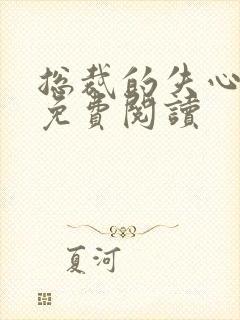 总裁的失心
免費閱讀
夏河